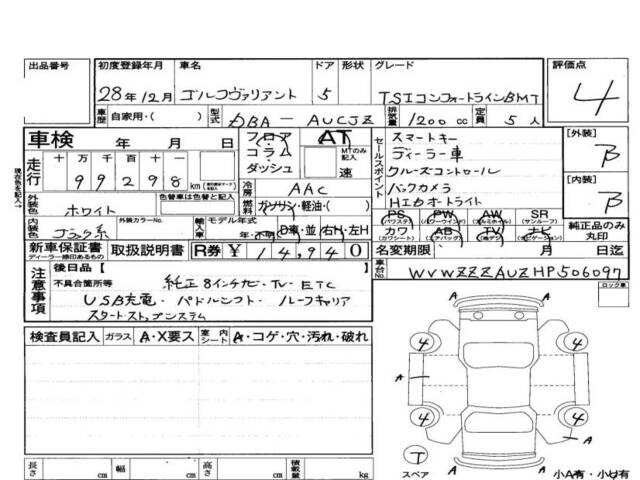 出品番号
初度登録年月 車名 ドア 形状 グレード
評価点
28年12月 ゴルフヴァリアント 5 TSIコンフォートラインBMT
4
車歴 自家用・( ) 型式 DBA-AUCJZ 排気量 1200cc 定員 5人
車検 年 月 日
フロア AT
コラム MTのみ記入
ダッシュ 速
セールスポイント
スマートキー
ディーラー車
クルーズコントロール
バックカメラ
HIDオートライト
[外装] B
[内装] B
現在約を記入→
走行 十万千百十 99298 km
冷房 AAC
燃料 ガソリン・軽油・( )
外装色 ホワイト 色替車は色替と記入
内装色 ブラック系 外装カラーNo.
輸入車 モデル年式 年・不明 D車・並 右H・左H
PS PW AW SR
(パワステ) (パワーウインド) (アルミホイル) (サンルーフ)
カワ AB TV ナビ
(カワシート) (エアバッグ) (ナビゲーション)
純正品のみ丸印
新車保証書 取扱説明書 R券 ¥14,940
ディーラー捺印あるもの
名変期限 月 日迄
注意事項
後日品【 】
不具合箇所等
純正8インチナビ・TV・ETC
USB充電・パドルシフト・ルーフキャリア
スタートストップシステム
車台No. WVWZZZAUZHP506097
ロック車
検査員記入 ガラス A・X要ス 室内シート A・コゲ・穴・汚れ・破れ
A A
4 4
A
4 4
A
T
スペア
A
長さ cm 幅 cm 高さ cm 積載量 kg
小A有・小U有